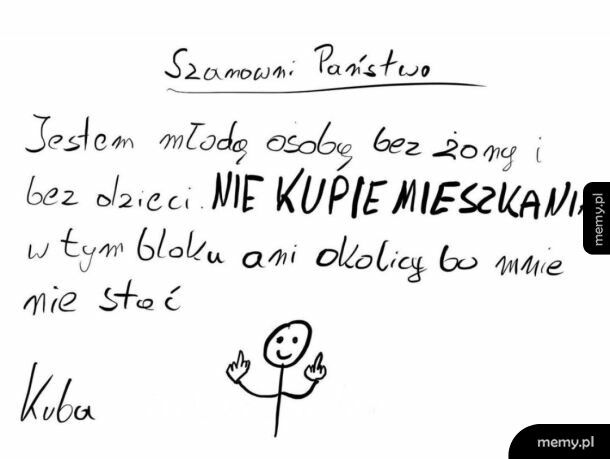 Szanowni Państwo
Jestem młodą osobą bez żony i
bez dzieci. NIE KUPIE MIESZKANIA
w tym bloku ani okolicy bo mnie
nie stać
Kuba
memy.pl
memy.pl